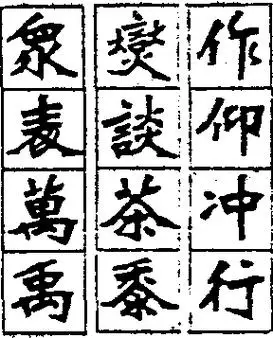 作仰冲行
燮談茶黍
眾表萬禹